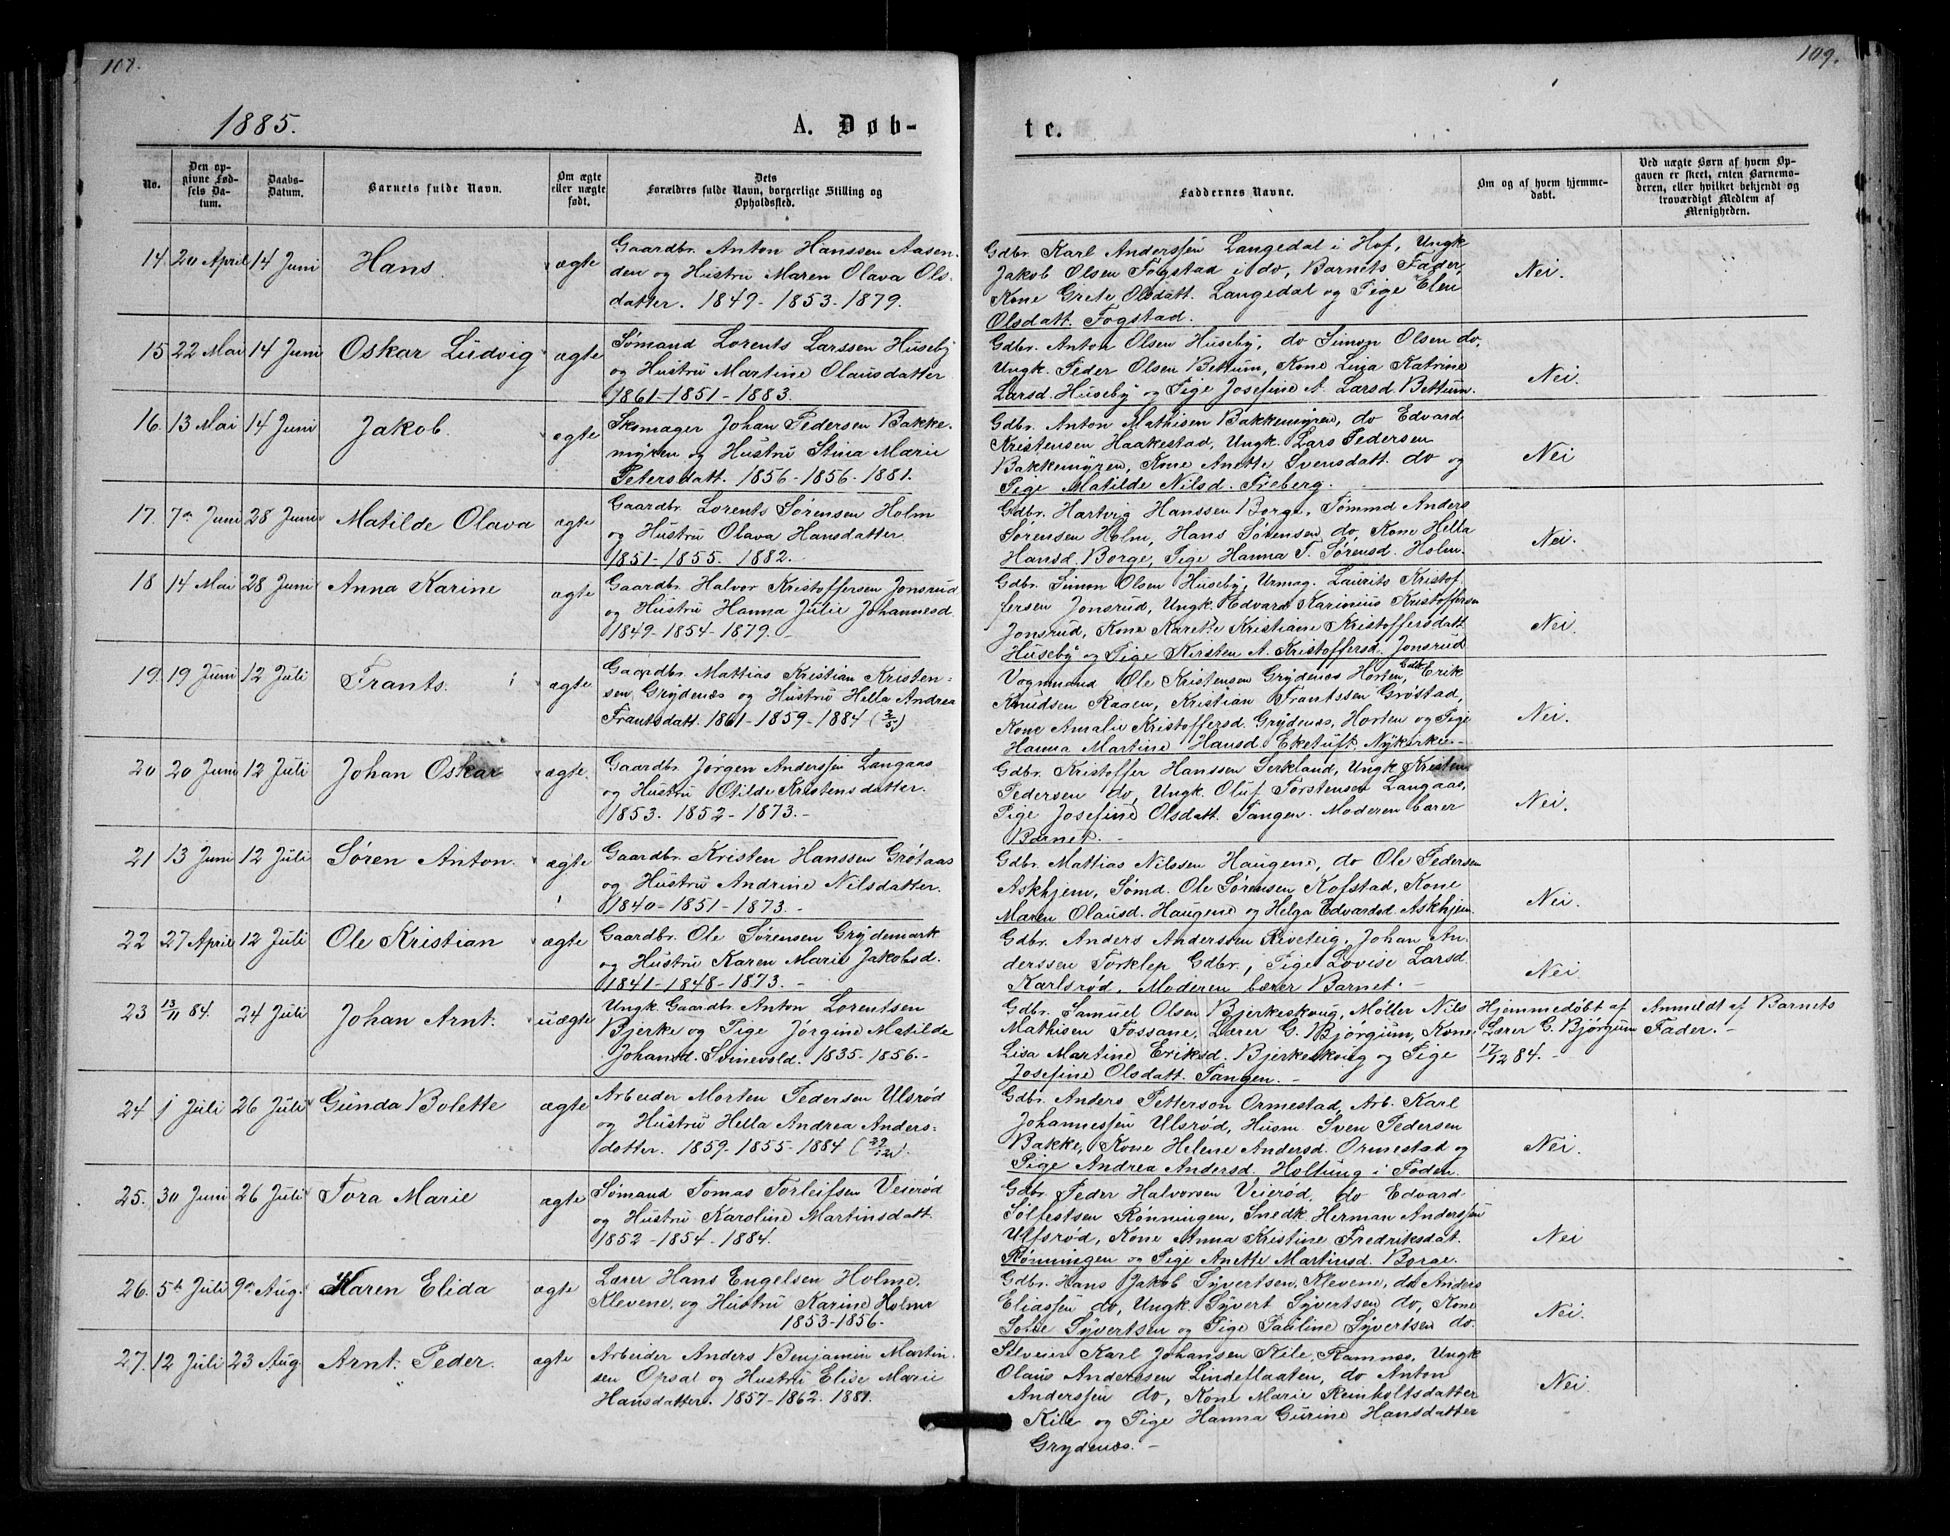 108.
109.
1885.
A. Døb-
te.
No.
Den op-
givne Fød-
sels Da-
tum.
Daabs-
Datum.
Barnets fulde Navn.
Om ægte
eller uægte
født.
Dets
Forældres fulde Navn, borgerlige Stilling og
Opholdssted.
Faddernes Navne.
Om og af hvem hjemme-
døbt.
Ved uægte Børn af hvem Op-
gaven er skeet, enten Barnemo-
deren, eller hvilket bekjendt og
troværdigt Medlem af
Menigheden.
14. 20 April 14 Juni Hans. ægte
Gaardbr. Anton Hanssen Aasen-
den og Hustru Maren Olava Ols-
datter. 1849-1853-1879.
Gdbr. Karl Anderssen Langedal i Hof, Ungk
Jakob Olsen Fogstad i do, Barnets Fader,
Kone Grete Olsdatt. Langedal og Pige Elen
Olsdatt. Fogstad.
Nei.
15 22 Mai 14 Juni Oskar Ludvig ægte
Sømand Lorents Larssen Huseby
og Hustru Martine Olausdatter
1861-1851-1883.
Gdbr. Anton Olsen Huseby, do Simon Olsen do,
Ungk. Peder Olsen Bettum, Kone Lina Katrine
Larsd. Huseby og Pige Josefine A. Larsd Bettum.
Nei.
16. 13 Mai 14 Juni Jakob. ægte
Skomager Johan Pedersen Bakke-
myren og Hustru Stina Marie
Petersdatt. 1856-1856-1881.
Gdbr. Anton Mathisen Bakkemyren, do Edvard
Kristensen Haakestad, Ungk. Lars Pedersen
Bakkemyren, Kone Anette Svensdatt. do og
Pige Matilde Nilsd. Freberg.
Nei
17. 7de Juni 28 Juni Matilde Olava ægte
Gaardbr. Lorents Sørensen Holm
og Hustru Olava Hansdatter
1851-1855. 1882.
Gdbr. Hartvig Hanssen Borge, Tømmd Anders
Sørensen Holm, Hans Sørensen do, Kone Hella
Hansd. Borge, Pige Hanna T. Sørensd. Holm.
Nei.
18 14 Mai 28 Juni Anna Karine ægte
Gaardbr. Halvor Kristoffersen Jonsrud
og Hustru Hanna Julie Johannesd.
1849-1854-1879.-
Gdbr. Simon Olsen Huseby, Urmag. Laurits Kristof-
fersen Jonsrud, Ungk. Edvard Karinius Kristoffersen
Jonsrud, Kone Karette Kristiane Kristoffersdatt.
Huseby og Pige Kirsten A. Kristoffersd. Jonsrud
Nei.
19. 19 Juni 12 Juli Frants. ægte
Gaardbr. Mattias Kristian Kristen-
sen Grydenæs og Hustru Hella Andrea
Frantsdatt. 1861-1859-1884 (2/5)
Vognmand Ole Kristensen Grydenæs Horten, Gdbr. Erik
Knudsen Raaen, Kristian Frantssen Grøstad,
Kone Amalie Kristoffersd. Grydenæs, Horten og Pige
Hanna Martine Hansd. Eketuft, Nykirke.-
Nei.
20 20 Juni 12 Juli Johan Oskar ægte.
Gaardbr. Jørgen Anderssen Langaas
og Hustru Otilde Kristensdatter.
1853. 1852-1873.-
Gdbr. Kristoffer Hanssen Serkland, Ungk. Kristen
Pedersen do, Ungk. Oluf Torstensen Langaas,
Pige Josefine Olsdatt. Tangen. Moderen bærer
Barnet.-
Nei.
21 13 Juni 12 Juli Søren Anton. ægte
Gaardbr. Kristen Hanssen Grøtaas
og Hustru Andrine Nilsdatter.
1840-1851-1873.-
Gdbr. Mattias Nilssen Haugene, do Ole Pedersen
Askhjem, Sømd. Ole Sørensen Kofstad, Kone
Maren Olausd. Haugene og Helga Edvardsd Askhjem.
Nei.
22 27 April 12 Juli Ole Kristian ægte
Gaardbr. Ole Sørensen Grydemark
og Hustru Karen Marie Jakobsd.
1841-1848-1873.-
Gdbr. Anders Anderssen Kiveteig, Johan An-
derssen Torklep Gdbr., Pige Lovise Larsd
Karlsrød, Moderen bærer Barnet.-
Nei
23 13/11 84. 24 Juli Johan Arnt. uægte
Ungk Gaardbr. Anton Lorentsen
Bjerke og Pige Jørgine Matilde
Johansd. Svinevold. 1835-1856.-
Gdbr. Samuel Olsen Bjerkeskoug, Møller Nils
Mathisen Fossane, Lærer G. Bjørgum, Kone
Lisa Martine Eriksd. Bjerkeskoug og Pige
Josefine Olsdatt. Tangen.-
Hjemmedøbt af
Lærer G. Bjørgum
17/12 84.-
Anmeldt af Barnets
Fader.-
24 1 Juli 26 Juli Gunda Bolette ægte
Arbeider Morten Pedersen Ulsrød
og Hustru Hella Andrea Anders-
datter. 1859-1855-1884 (29/12).
Gdbr. Anders Petterson Ormestad, Arb. Karl
Johannessen Ulsrød, Husm. Sven Pedersen
Bakke, Kone Helene Andersd. Ormestad og
Pige Andrea Andersd. Holtung i Foden.
Nei.
25. 30 Juni 26 Juli Tora Marie ægte
Sømand Tomas Torleifsen Veierød
og Hustru Karoline Martinsdatt.
1852-1854-1884.
Gdbr. Peder Halvorsen Veierød, do Edvard
Sølfestsen Rønningen, Snedk. Herman Anderssen
Ulfsrød, Kone Anna Kristine Fredriksdat.
Rønningen og Pige Anette Martinsd. Borge.
Nei
26. 5te Juli 9de Aug. Karen Elida ægte
Lærer Hans Engelsen Holme
Klevene, og Hustru Karine Holme
1853-1856-
Gdbr. Hans Jakob Syvertsen, Klevene, do Anders
Eliassen do, Ungk. Syvert Syvertsen do, Kone
Sofie Syvertsen og Pige Pauline Syvertsen do.
Nei.
27. 12 Juli 23 Aug. Arnt Peder. ægte
Arbeider Anders Benjamin Martin-
sen Opsal og Hustru Elise Marie
Hansdatter. 1857-1862. 1881.
Selveier Karl Johansen Kile, Ramnæs, Ungk
Olaus Anderssen Lindeflaaten, do Anton
Anderssen do, Kone Marie Reinholtsdatter
Kile og Pige Hanna Gurine Hansdatter
Grydenæs.-
Nei